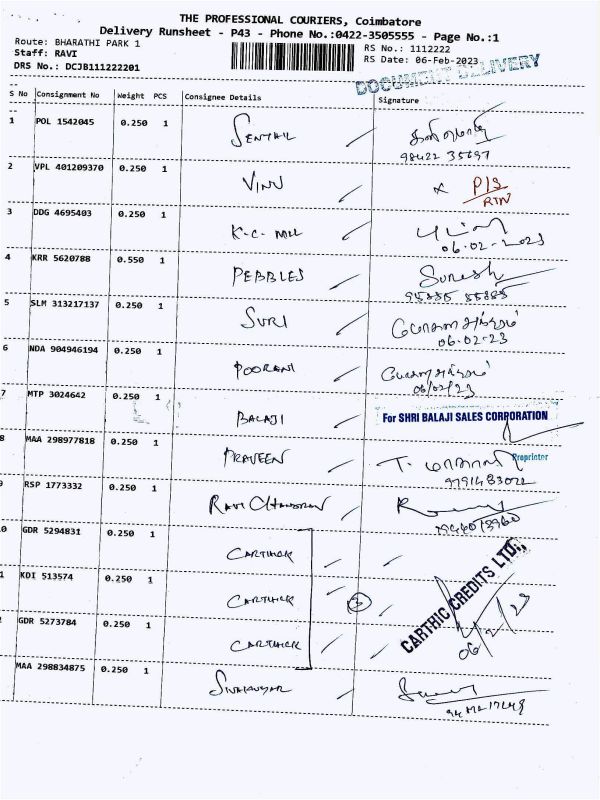 THE PROFESSIONAL COURIERS, Coimbatore
Delivery Runsheet - P43 - Phone No.:0422-3505555 - Page No.:1
Route: BHARATHI PARK 1
Staff: RAVI
DRS No.: DCJB111222201
RS No.: 1112222
RS Date: 06-Feb-2023
DOCUMENT DELIVERY
S No Consignment No Weight PCS Consignee Details Signature
1 POL 1542045 0.250 1 SENTHIL
98422 35697
2 VPL 401209370 0.250 1 VINU x P/S
RTN
3 DDG 4695403 0.250 1 K.C. MILL
06.02.2023
4 KRR 5620788 0.550 1 PEBBLES Suresh
5 SLM 313217137 0.250 1 SURI
06.02.23
6 NDA 904946194 0.250 1 POORANI
06/02/23
7 MTP 3024642 0.250 1 BALAJI For SHRI BALAJI SALES CORPORATION
Proprietor
8 MAA 298977818 0.250 1 PRAVEEN
9791483022
9 RSP 1773332 0.250 1 RAVI CHANDRAN
0 GDR 5294831 0.250 1 CARTHICK
1 KDI 513574 0.250 1 CARTHICK 3
GDR 5273784 0.250 1 CARTHICK
CARTHIC CREDITS LTD.,
06/2/23
MAA 298834875 0.250 1 SIVAKUMAR